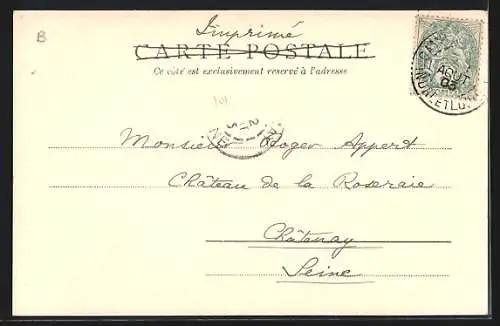 B
Imprimé
CARTE POSTALE
Ce côté est exclusivement reservé à l'adresse
101
Monsieur Roger Appert
Château de la Roseraie
Châtenay
Seine
AOUT
03